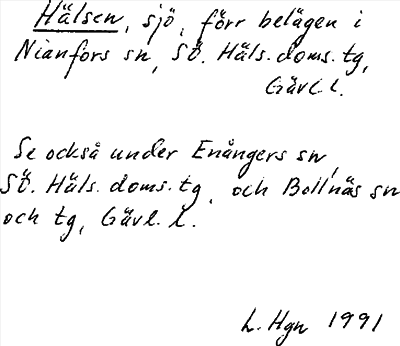 Hälsen, sjö, förr belägen i
Nianfors sn, SÖ. Häls. doms. tg,
Gävl. l.
Se också under Enångers sn,
SÖ. Häls. doms. tg. och Bollnäs sn
och tg, Gävl. l.
L. Hgn 1991